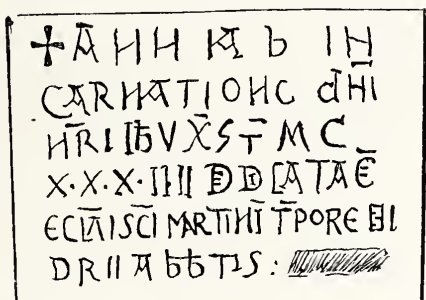 ✝ ĀNN IA b IN
CARNATIONE dN̄I
N̄RI IħV X̄S T̄ M C
X·X·X·IIII DEDICATA Ē
ECLĀ ISC̄I MARTINI T̄PORE
DRII A bbTIS :